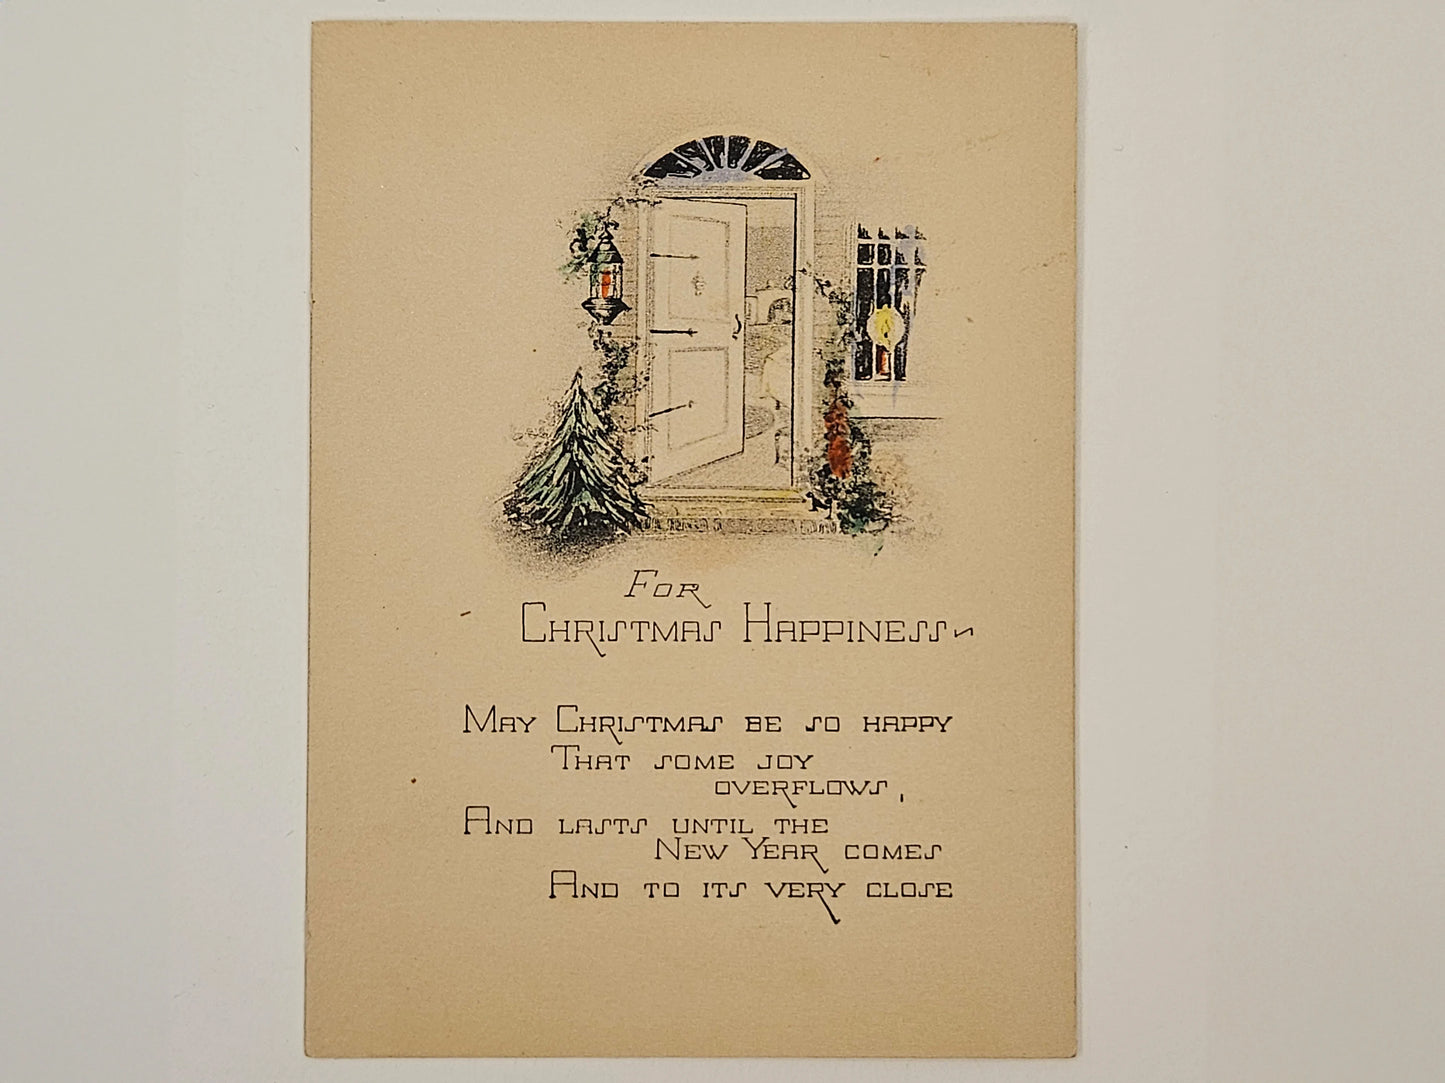 For
Christmas Happiness~
May Christmas be so happy
That some joy
overflows,
And lasts until the
New Year comes
And to its very close